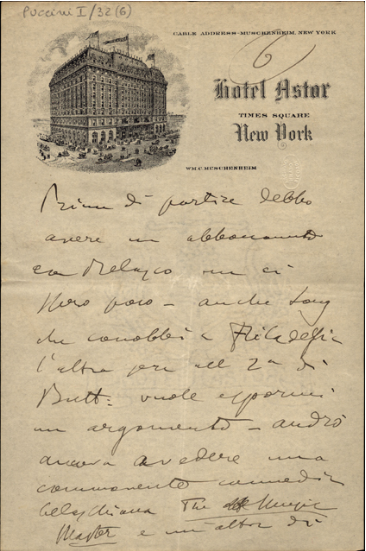 Puccini I/32(6)
CABLE ADDRESS-MUSCHENHEIM, NEW YORK
6
Hotel Astor
TIMES SQUARE
New York
WM C. MUSCHENHEIM
Prima di partire debbo
avere un abboccamento
con Belasco ma ci
spero poco – anche Long
che conobbi a Filadelfia
l'altra sera all 2a di
Butt: vuole espormi
un argomento – andrò
ancora a vedere una
commedia
The Music
Master e un'altra di